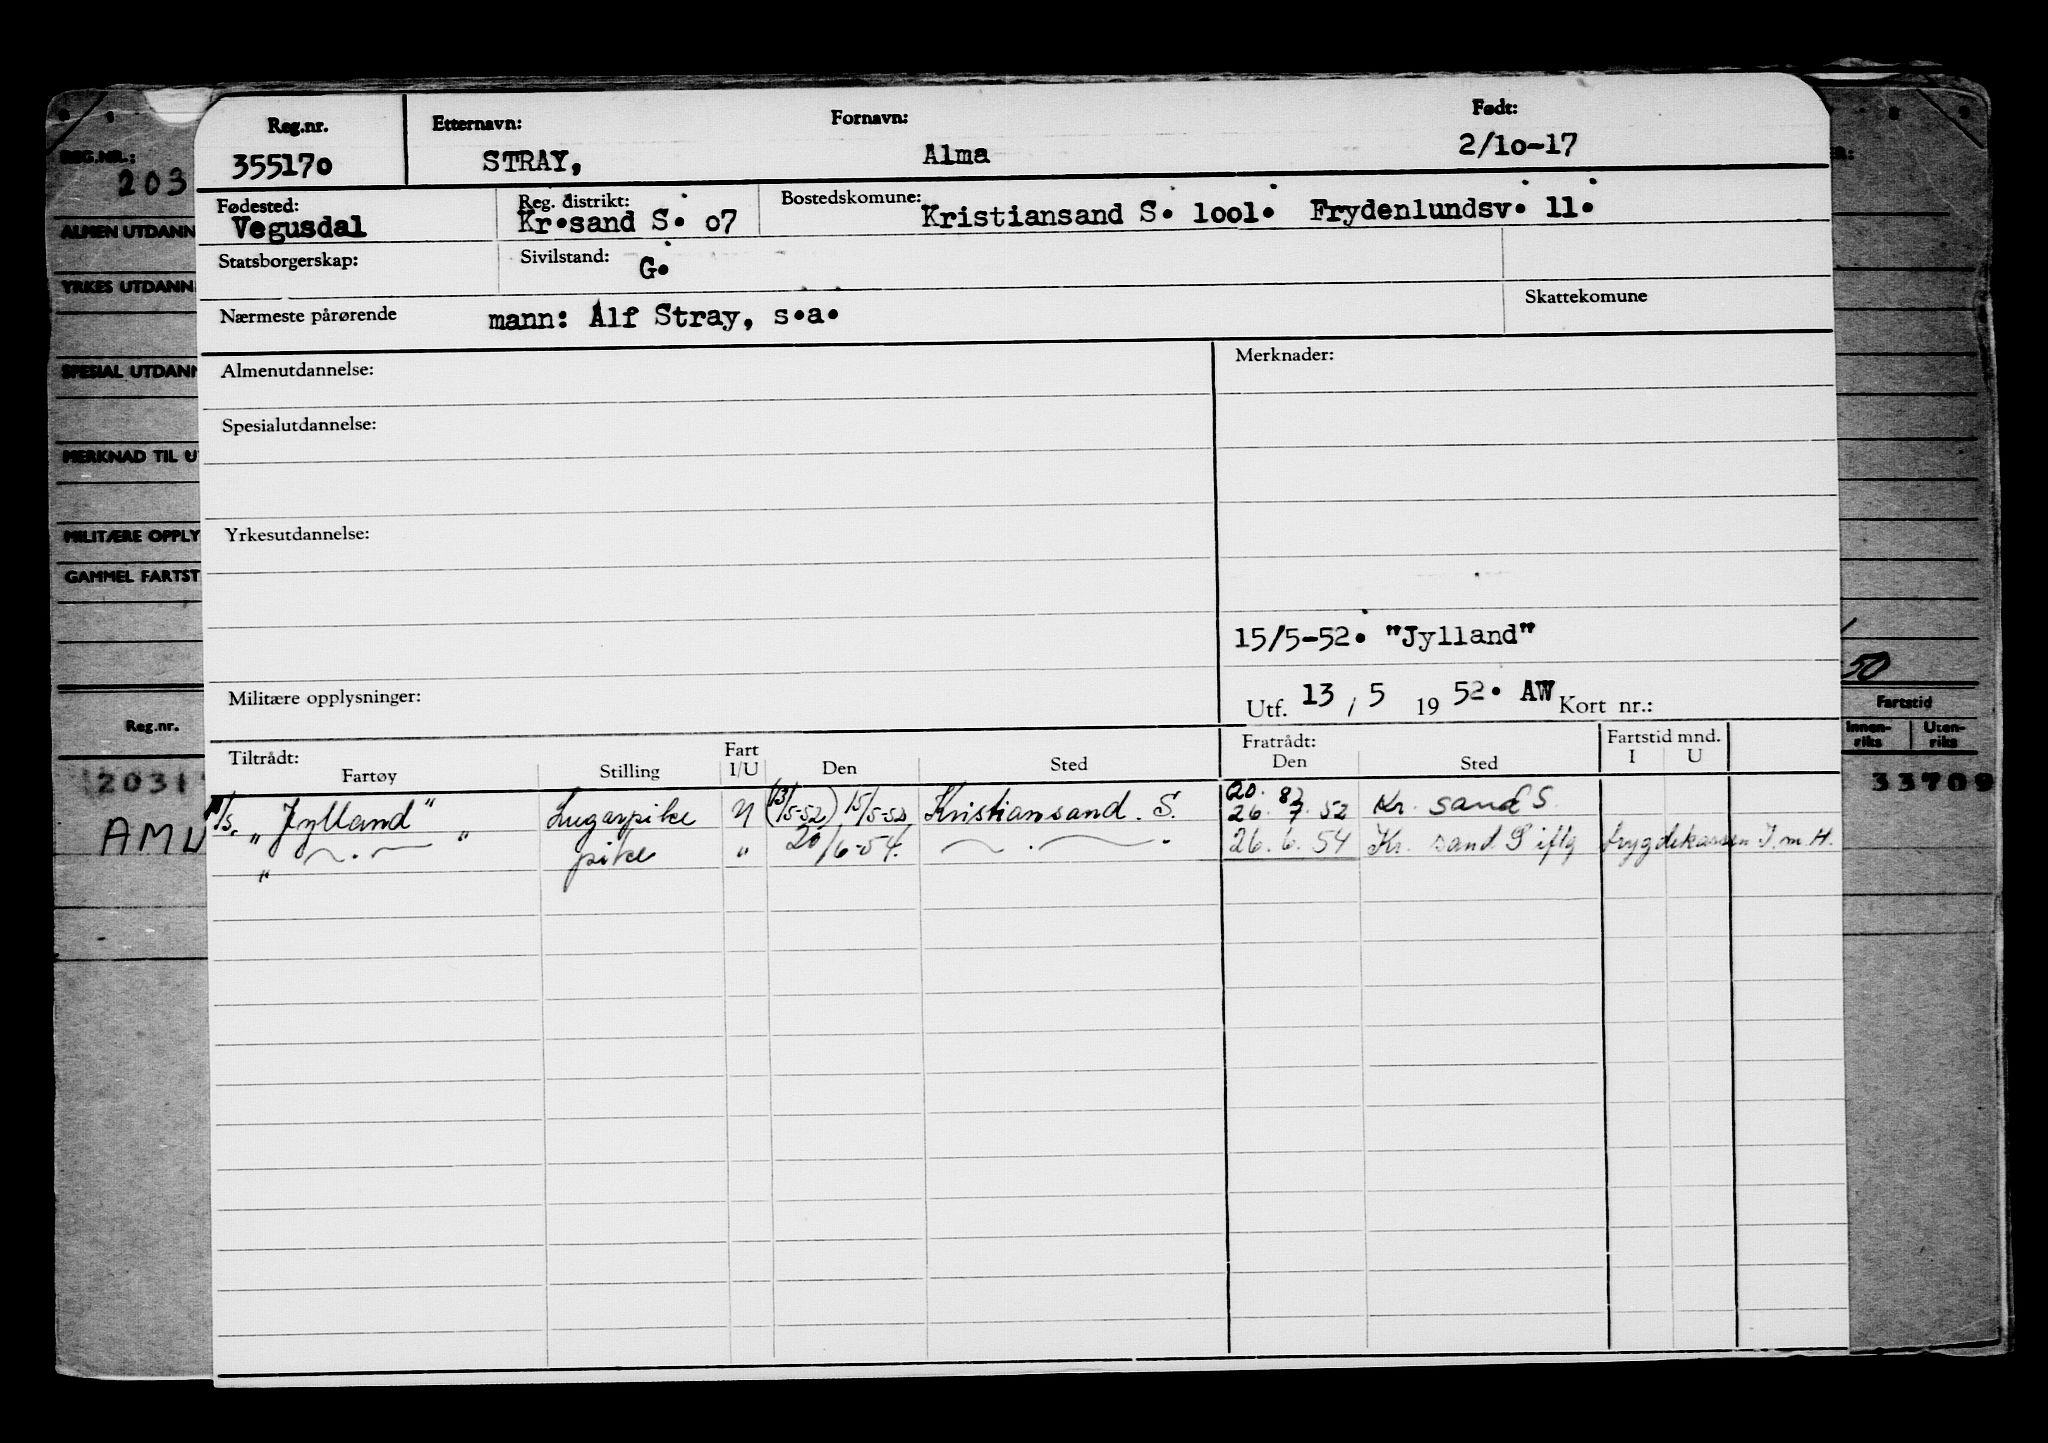 Reg.nr. Etternavn: Fornavn: Født:
35517o STRAY, Alma 2/1o-17
Fødested: Reg. distrikt: Bostedskomune:
Vegusdal Kr.sand S. o7 Kristiansand S. 1oo1. Frydenlundsv. 11.
Statsborgerskap: Sivilstand: G.
Nærmeste pårørende mann: Alf Stray, s.a. Skattekomune
Almenutdannelse: Merknader:
Spesialutdannelse:
Yrkesutdannelse:
15/5-52. "Jylland"
Militære opplysninger: Utf. 13 / 5 19 52. AW Kort nr.:
Tiltrådt: Fart Fratrådt: Fartstid mnd.
Fartøy Stilling I/U Den Sted Den Sted I U
"Jylland" Lugarpike U (13/5-52) 15/5-52 Kristiansand. S. 20. 8 26. 7. 52 Kr. sand S.
" " pike " 20/6-54. 26. 6. 54 Kr. sand S iflg trygdekassen I.m.H.
"
REG.NR.:
203
ALMEN UTDANN
YRKES UTDANN
SPESIAL UTDANN
MERKNAD TIL U
MILITÆRE OPPLY
GAMMEL FARTST
50
Reg.nr. Fartstid
Innen-riks Uten-riks
2031 33709
AMU